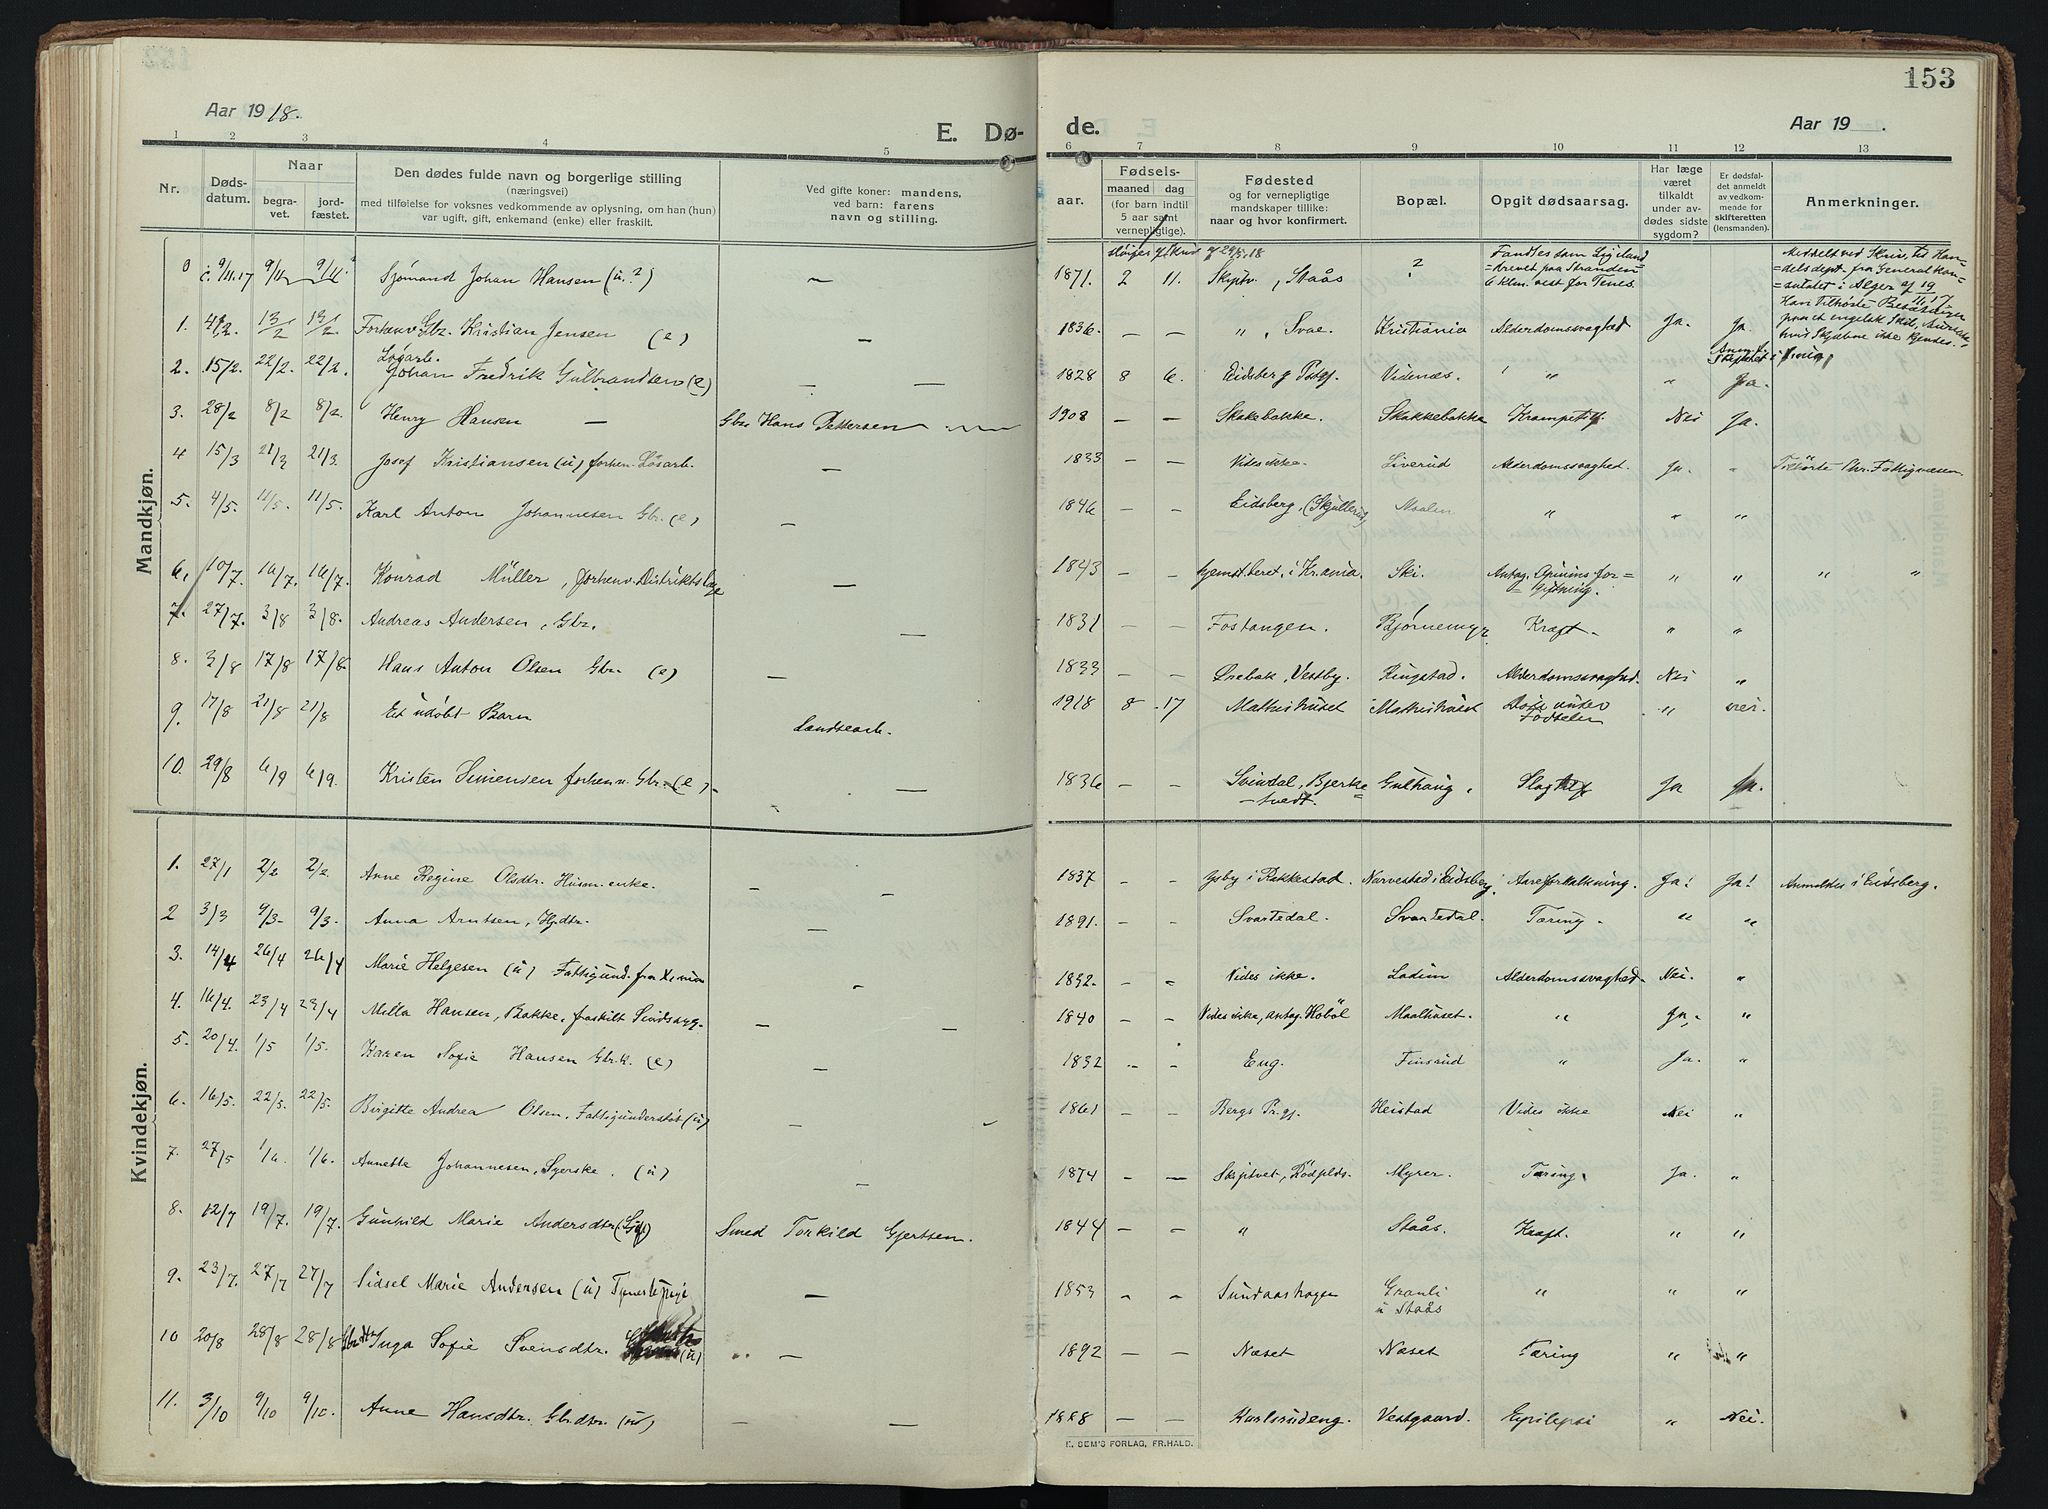 153
Aar 1918.
E. Dø-
de.
Aar 19 .
1 2 3 4 5
6 7 8 9 10 11 12 13
Nr.
Døds-
datum.
Naar
begra-
vet.
jord-
fæstet.
Den dødes fulde navn og borgerlige stilling
(næringsvei)
med tilføielse for voksnes vedkommende av oplysning, om han (hun)
var ugift, gift, enkemand (enke) eller fraskilt.
Ved gifte koner: mandens,
ved barn: farens
navn og stilling.
aar.
Fødsels-
maaned dag
(for barn indtil
5 aar samt
vernepligtige).
Fødested
og for vernepligtige
mandskaper tillike:
naar og hvor konfirmert.
Bopæl.
Opgit dødsaarsag.
Har læge
været
tilkaldt
under av-
dødes sidste
sygdom?
Er dødsfal-
det anmeldt
av vedkom-
mende for
skifteretten
(lensmanden).
Anmerkninger.
Mandkjøn.
0 c. 9/11.17 9/11 9/11 Sjømand Johan Hansen (u.?) — 1871. 2 11. Skiptv., Staås ? Fandtes som Lig iland
=drevet paa Stranden
6 klm. vest for Tenes.
Meddelt ved Skriv. fra Han=
=delsdept. fra Generalkon=
=sulatet i Alger af 19/11.17.
Han tilhørte Besætningen
paa et engelsk Skib,
hvis Skjæbne ikke kjendes.
1. 4/2. 13/2 13/2 Forhenv. Gbr. Kristian Jensen (e) — 1836. — — „ , Svae. Kristiania Alderdomssvaghed Ja. Ja.
2. 15/2. 22/2. 22/2. Løsarb. Johan Fredrik Gulbrandsen (e) — — 1828 8 6. Eidsberg Pstgj. Videnæs. „ „ Ja.
3. 28/2 8/2 8/2. Henry Hansen — Gbr. Hans Pettersen 1908 — — Skakebakke. Skakkebakke Krampetilf. Nei Ja.
4 15/3 21/3 21/3. Josef Kristiansen (u) forhen. Løsarb. — 1833 — — Vides ikke. Liverud Alderdomssvaghed. Ja. „ Tilhørte Chr. Fattigvæsen
5. 4/5. 11/5. 11/5. Karl Anton Johannesen Gbr. (e) — 1846 — — Eidsberg, (Skjullerud) Moalen „ „ „
6. 10/7. 16/7. 16/7. Konrad Müller, forhenv. Distriktslæge — 1843 — — hjemstberet. i Kr.ania. Ski. Antag. Opiumsfor=
=giftning. „ „ „ „
7. 27/7. 3/8 3/8. Andreas Andersen, Gbr. — 1831 — — Fostangen. Bjørnemyr Kræft. „ „
8. 3/8 17/8 17/8 Hans Anton Olsen Gbr. (e) — 1833 — — Ørebæk, Vestby. Ringstad. Alderdomssvaghed. Nei „
9. 17/8 21/8 21/8 Et udøbt Barn Landsearb. 1918 8 17 Mathishuset Mathishuset Døde under
Fødselen „ nei.
10. 29/8 6/9 6/9. Kristen Simensen forhenv. Gbr. (e) — — 1836 — — Svindal, Bjerke=
—tvedt. Gulhaug. Slagtilf Ja Ja.
Kvindekjøn.
1. 27/1 2/2 2/2 Anne Regine Olsdtr. Husm. enke. — — 1837 — — Ysby i Rakkestad. Narvestad i Eidsberg. Aareforkalkning. Ja! Ja! Anmeldes i Eidsberg.
2 3/3 9/3 9/3. Anna Arntsen, Hjdtr. — 1891. — — Svartedal. Svartedal. Tæring. „ „
3. 14/4 26/4 26/4 Marie Helgesen (u) Fattigund. fra Kr.ania — 1832. — — Vides ikke. Ladim Alderdomssvaghed. Nei. „
4. 16/4. 23/4 23/4 Milla Hansen, Bakke, fraskilt Sindssyg. — — 1840 — — Vides ikke, antag. Hobøl Maalhuset. „ Ja. „
5. 20/4. 1/5 1/5. Karen Sofie Hansen Gbrk. (e) — 1832 — — Eng. Finsrud „ Ja. „
6. 16/5. 22/5. 22/5. Birgitte Andrea Olsen, Fattigunderstøt (u) — 1861 — — Bergs Pr.gj. Heistad Vides ikke Nei „
7. 27/5 1/6. 1/6. Annette Johannesen, Syerske. (u) — 1874 — — Skiptvet, Rødplds. Myrer. Tæring. Ja. „
8. 12/7 19/7. 19/7. Gunhild Marie Andersdtr. (Gift) Smed Torkild Gjertsen. 1844 — — „ Staås. Kræft. „ „
9. 23/7. 27/7 27/7 Sidsel Marie Andersen (u) Tjenestepige — 1853 — — Sundaashagen Granli
u Staås „ „ „
10 20/8 28/8 28/8 Gbrdtr Inga Sofie Svensdtr. (u) — 1892 — — Næset Næset Tæring „ „
11. 3/10 9/10 9/10. Anne Hansdtr. Gbrdtr. (u) — — 1888 — — Karlsrudeng. Vestgaard. Epilepsi „ Nei.
E. SEM'S FORLAG, FR.HALD.